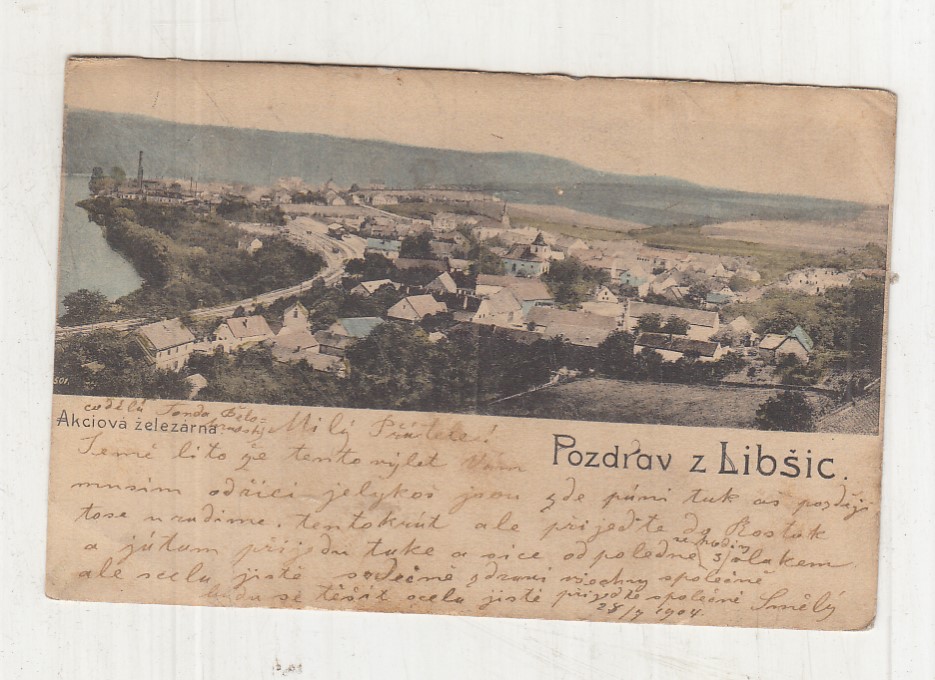 501.
Akciová železárna
Pozdrav z Libšic.
co dělá Tonda
Milý Přátelé
Jemě líto že tento výlet Vám
musím odříci jelykoš jsou zde páni tak až později
tose uradime. tentokrát ale přijeďte do Rostok
a já tam přijedu take a sice odpoledne vlakem
3 hodiny
ale scela jistě srdečně zdraví všechny společně
budu se těšit scela jistě přijeďte společně Smělý
28/7 1904